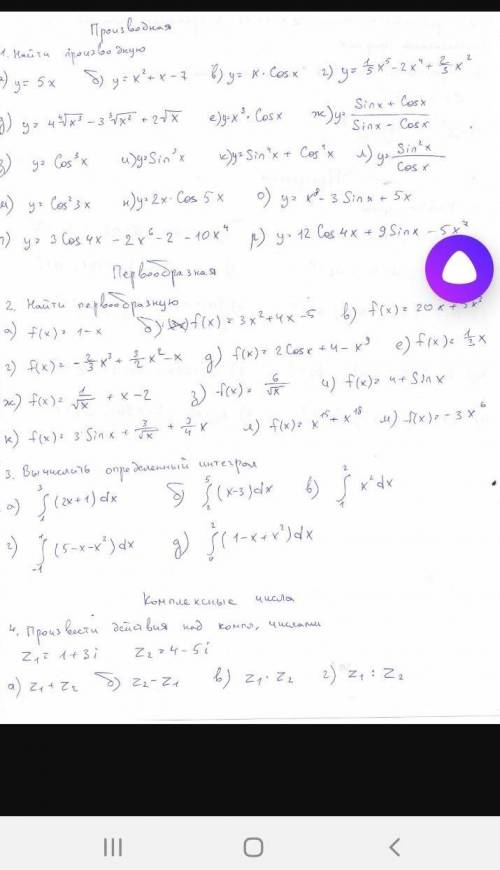 Производная
1. Найти производную
а) y = 5x б) y = x² + x - 7 в) y = x · Cosx г) y = 1/5 x⁵ - 2x⁴ + 2/3 x²
д) y = 4 ∜x³ - 3 ∛x² + 2√x е) y = x³ · Cosx ж) y = (Sinx + Cosx)/(Sinx - Cosx)
з) y = Cos³x и) y = Sin³x к) y = Sin⁴x + Cos⁴x л) y = Sin²x/Cosx
м) y = Cos²3x н) y = 2x · Cos 5x о) y = x⁸ - 3 Sinx + 5x
п) y = 3 Cos4x - 2x⁶ - 2 - 10x⁴ р) y = 12 Cos4x + 9 Sinx - 5x⁷
Первообразная
2. Найти первообразную
а) f(x) = 1 - x б) f(x) = 3x² + 4x - 5 в) f(x) = 20x +
г) f(x) = - 2/3 x³ + 3/2 x² - x д) f(x) = 2 Cosx + 4 - x⁹ е) f(x) = 1/3 x
ж) f(x) = 1/√x + x - 2 з) f(x) = 6/√x и) f(x) = 4 + Sinx
к) f(x) = 3 Sinx + 3/√x + 3/4 x л) f(x) = x¹⁵ + x¹⁸ м) f(x) = - 3x⁶
3. Вычислить определенный интеграл
а) ∫₁³ (2x + 1) dx б) ∫₂⁵ (x - 3) dx в) ∫₁² x² dx
г) ∫₋₁¹ (5 - x - x²) dx д) ∫₀² (1 - x + x²) dx
Комплексные числа
4. Произвести действия над компл. числами
Z₁ = 1 + 3i Z₂ = 4 - 5i
а) Z₁ + Z₂ б) Z₂ - Z₁ в) Z₁ · Z₂ г) Z₁ : Z₂